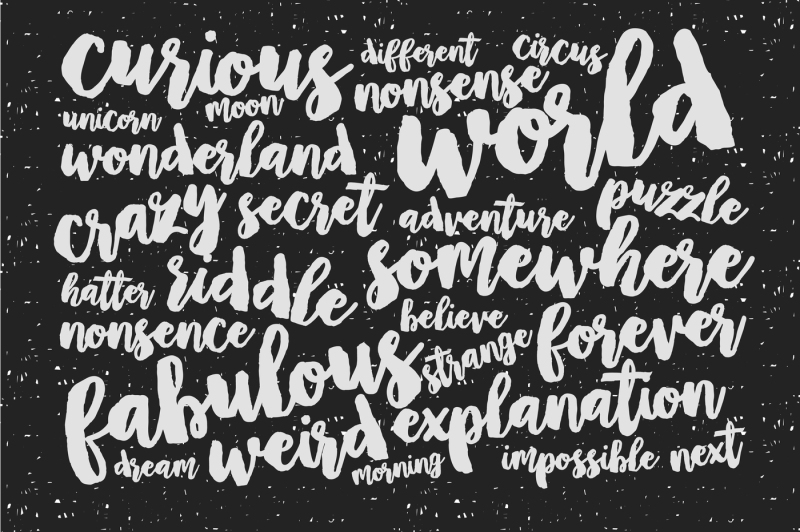 curious
different
circus
nonsense
world
unicorn
moon
wonderland
crazy
secret
adventure
puzzle
somewhere
hatter
riddle
believe
nonsence
forever
strange
fabulous
explanation
weird
dream
morning
impossible
next